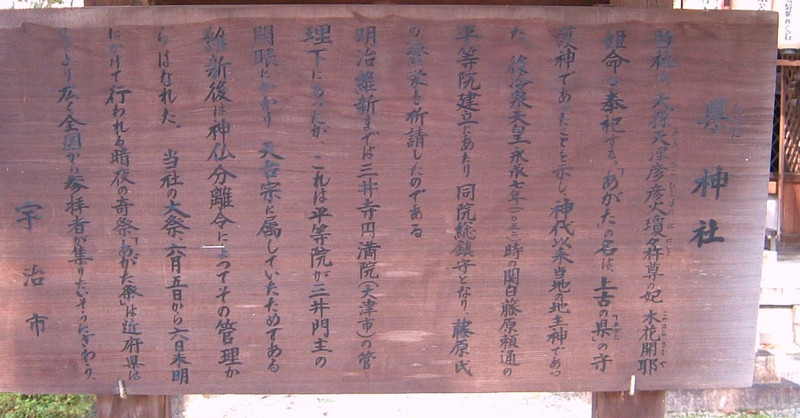 県神社
当社は、大孫天津彦彦火瓊々杵尊の妃 木花開耶
姫命を奉祀する。「あがた」の名は、上古の県の守
護神であったことを示し、神代以来当地の地主神であっ
た。後冷泉天皇永承七年(一〇五二)時の関白藤原頼通の
平等院建立にあたり 同院総鎮守となり、藤原氏
の繁栄を祈請したのである
明治維新までは三井寺円満院(大津市)の管
理下にあったが、これは平等院が三井門主の
開眼にかかり 天台宗に属していたためである
維新後は神仏分離令によってその管理か
らはなれた。 当社の大祭 六月五日から六日未明
にかけて行われる暗夜の奇祭「あがた祭」は近府県は
もとより広く全国から参拝者が集りたいそうにぎわう。
宇治市